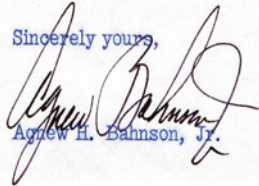 Sincerely yours,
Agnew Bahnson Jr
Agnew H. Bahnson, Jr.